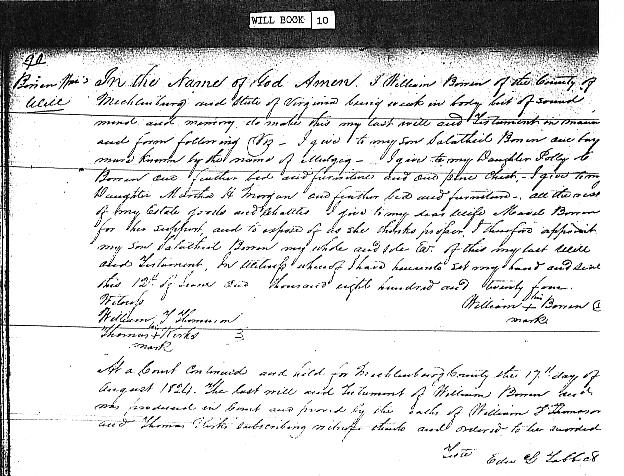 WILL BOOK 10
90
Bowen Wm's
Will
In the Name of God Amen. I William Bowen of the County of
Mecklenburg and State of Virginia being weak in body but of sound
mind and memory do make this my last will and Testament in manner
and form following (Viz) - I give to my son Salathiel Bowen one bay
mare known by the name of - I give to my Daughter Polly
Bowen one feather bed and furniture and one pine Chest - I give to my
Daughter Martha H Morgan one feather bed and furniture - all the rest
of my Estate goods and Chattles I give to my dear Wife Bowen
for her support, and to dispose of as she thinks proper. I therefore appoint
my son Salathiel Bowen my whole and sole Exr. of this my last Will
and Testament, In Witness whereof I have hereunto set my hand and seal
this 12th of June one thousand eight hundred and twenty four.
Witness
William his + mark Bowen
William T Thomason
Thomas his + mark Kirks
At a Court Continued and held for Mecklenburg County the 17th day of
August 1824. The last will and Testament of William Bowen decd
was produced in Court and proved by the oaths of William T Thomason
and Thomas Kirks subscribing witnesses thereto and ordered to be recorded
Teste